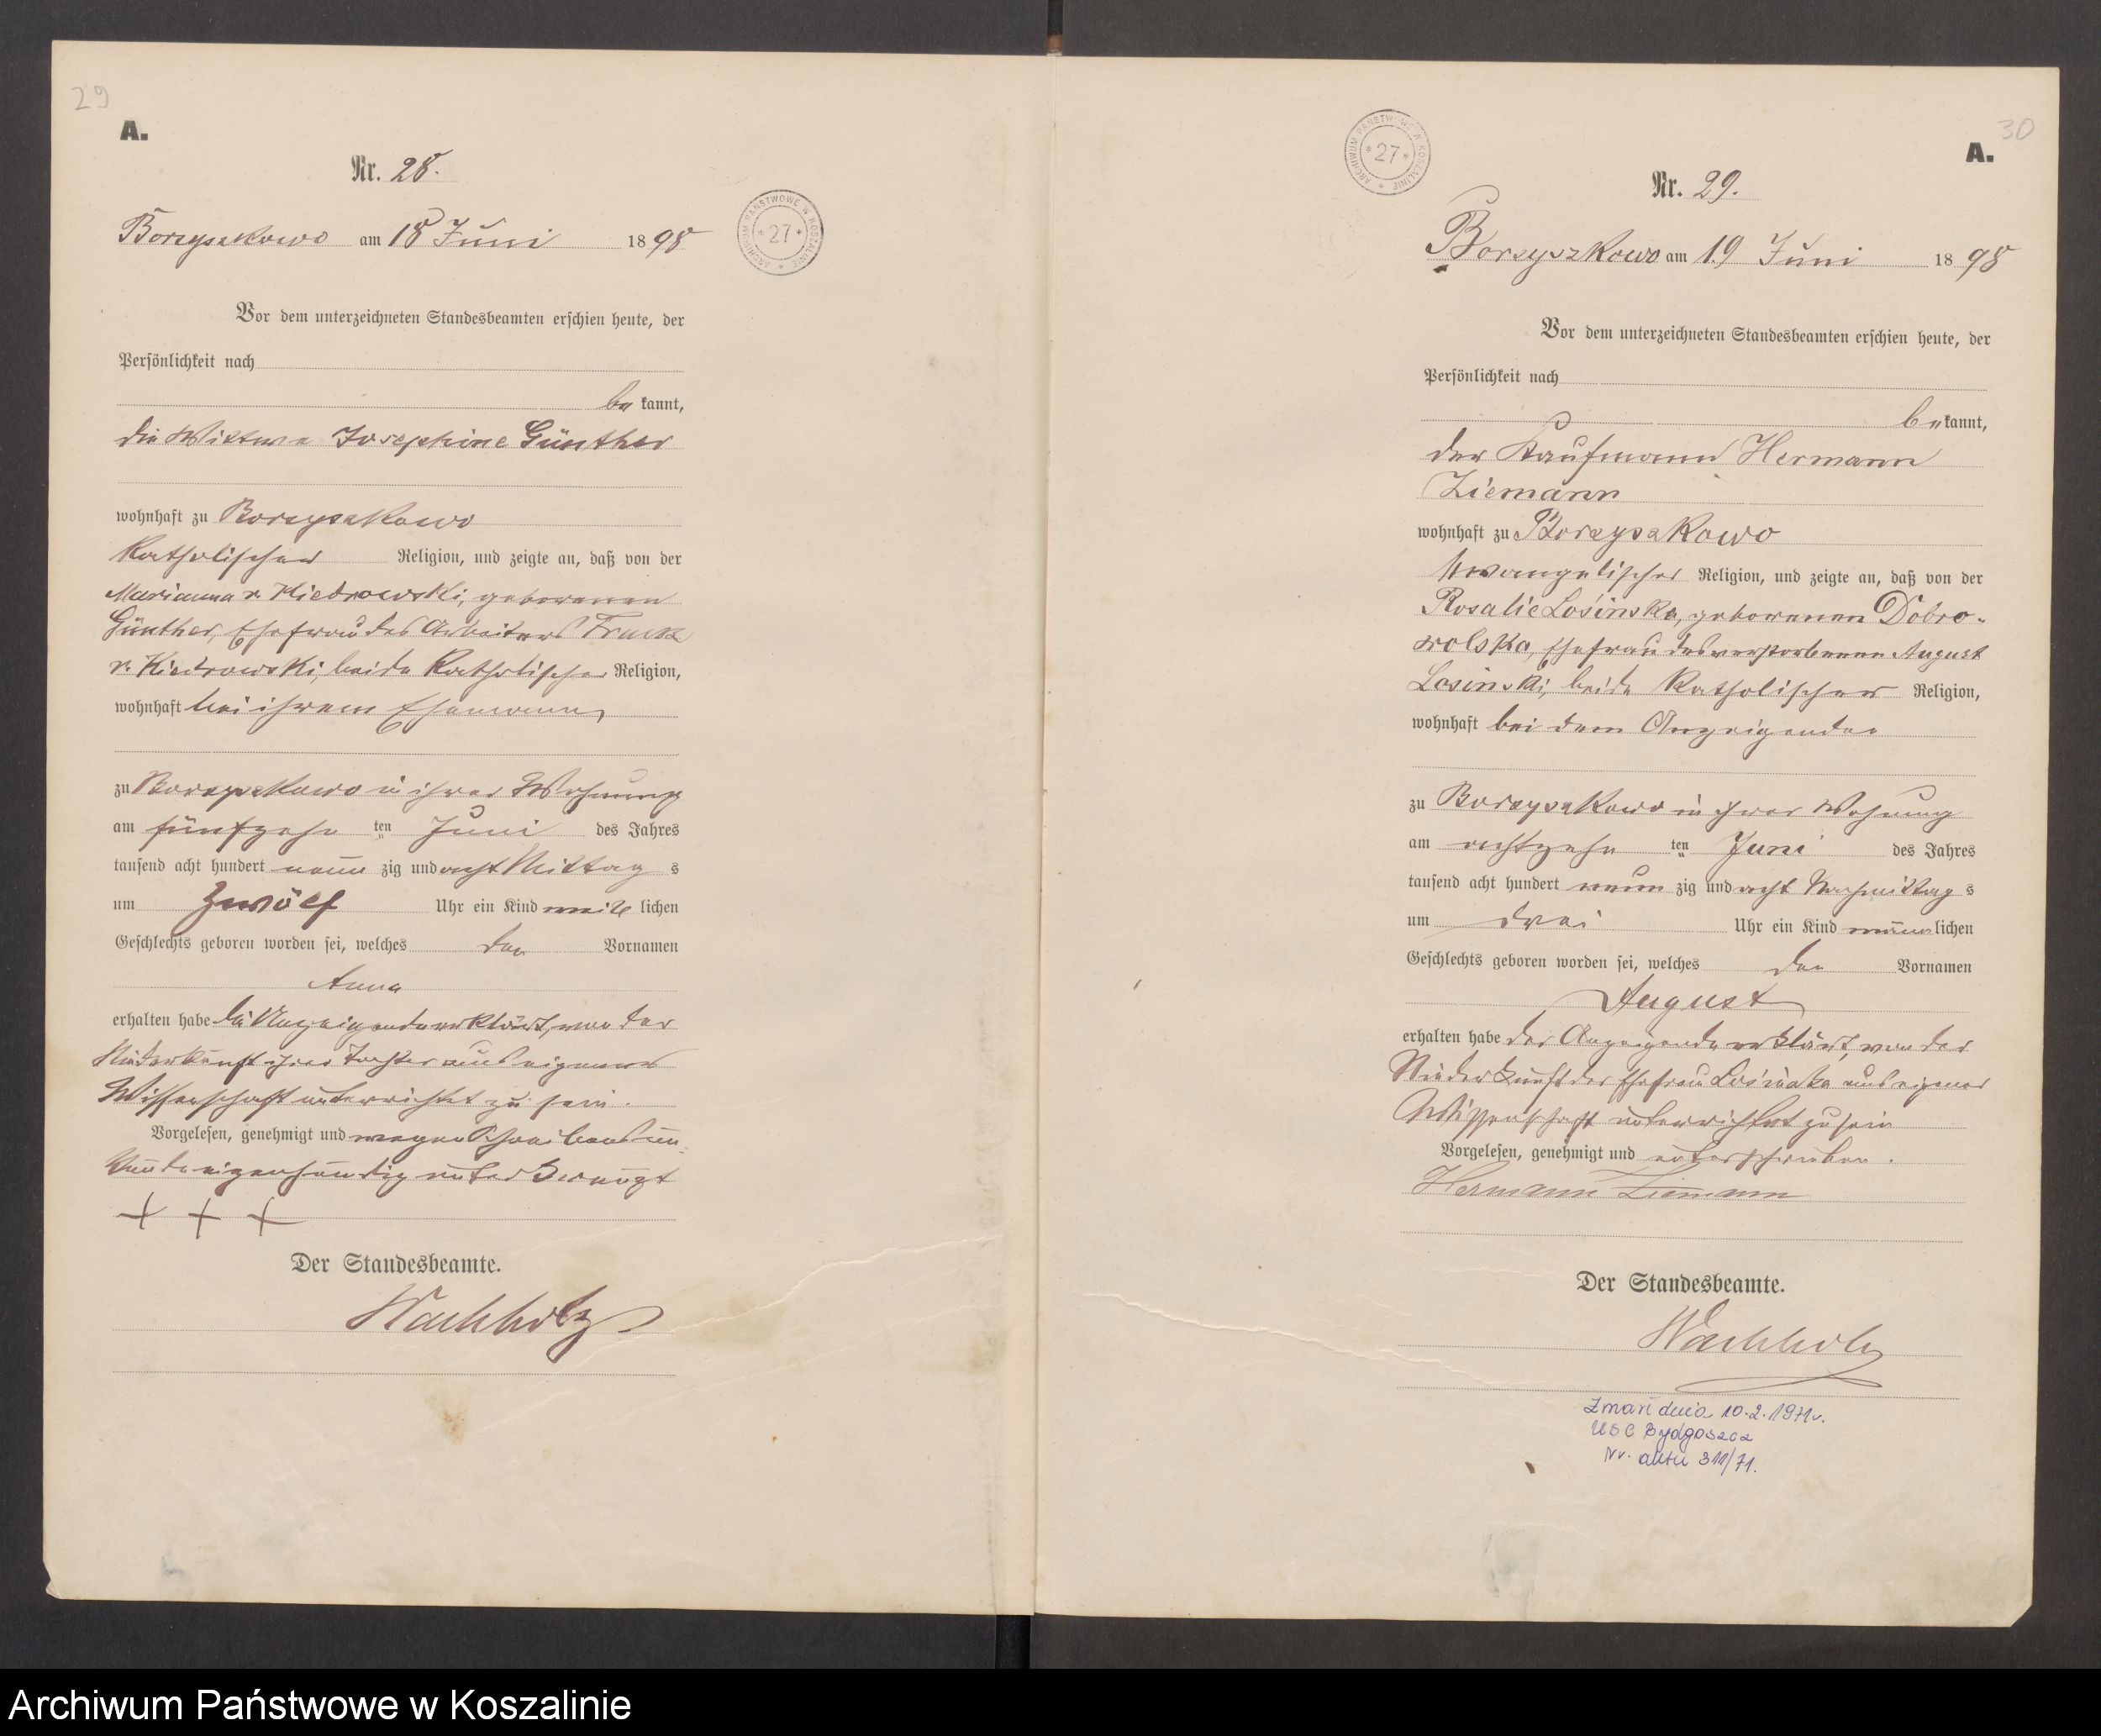 29
A.
Nr. 28.
Borzyszkowo am 18 Juni 1898
ARCHIWUM PAŃSTWOWE W KOSZALINIE * 27 *
Vor dem unterzeichneten Standesbeamten erschien heute, der
Persönlichkeit nach
be kannt,
die Wittwe Josephine Günther
wohnhaft zu Borzyszkowo
katholischer Religion, und zeigte an, daß von der
Marianna v. Kiedrowski, geborenen
Günther, Ehefrau des Arbeiters Franz
v. Kiedrowski, beide katholischer Religion,
wohnhaft bei ihrem Ehemann
zu Borzyszkowo in ihrer Wohnung
am fünfzehn ten Juni des Jahres
tausend acht hundert neun zig und acht Mittag s
um zwölf Uhr ein Kind weib lichen
Geschlechts geboren worden sei, welches den Vornamen
Anna
erhalten habe die Anzeigende erklärt, von der
Niederkunft ihrer Tochter aus eigener
Wissenschaft unterrichtet zu sein.
Vorgelesen, genehmigt und wegen Schreibensun-
kunde eigenhändig unterkreuzt
+ + +
Der Standesbeamte.
Wachholz
30
A.
ARCHIWUM PAŃSTWOWE W KOSZALINIE * 27 *
Nr. 29.
Borzyszkowo am 19 Juni 1898
Vor dem unterzeichneten Standesbeamten erschien heute, der
Persönlichkeit nach
be kannt,
der Kaufmann Hermann
Ziemann
wohnhaft zu Borzyszkowo
evangelischer Religion, und zeigte an, daß von der
Rosalie Losinska, geborenen Dobro-
wolska, Ehefrau des verstorbenen August
Losinski, beide katholischer Religion,
wohnhaft bei dem Anzeigenden
zu Borzyszkowo in ihrer Wohnung
am achtzehn ten Juni des Jahres
tausend acht hundert neun zig und acht Nachmittag s
um drei Uhr ein Kind männ lichen
Geschlechts geboren worden sei, welches den Vornamen
August
erhalten habe der Anzeigende erklärt, von der
Niederkunft der Ehefrau Losinska aus eigener
Wissenschaft unterrichtet zu sein
Vorgelesen, genehmigt und unterschrieben.
Hermann Ziemann
Der Standesbeamte.
Wachholz
Zmarł dnia 10.2.1971r.
USC Bydgoszcz
Nr. aktu 311/71.
Archiwum Państwowe w Koszalinie